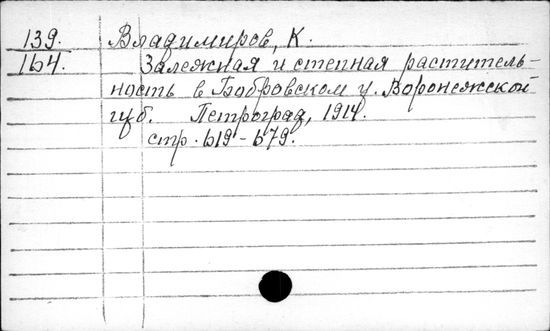 139. Владимиров, К.
164. Залежная и степная раститель-
ность в Бобровском у. Воронежской
губ. Петроград, 1914.
стр. 619-679.